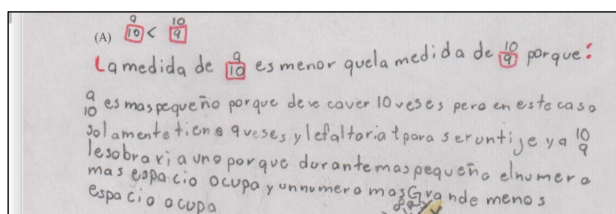 (A) 9/10 < 10/9
La medida de 9/10 es menor que la medida de 10/9 porque:
9/10 es mas pequeño porque deve caver 10 veses pero en este caso
solamente tiene 9 veses y le faltaria 1 para ser un tije y a 10/9
le sobraria uno porque durante mas pequeño el numero
mas espacio ocupa y un numero mas Grande menos
espacio ocupa